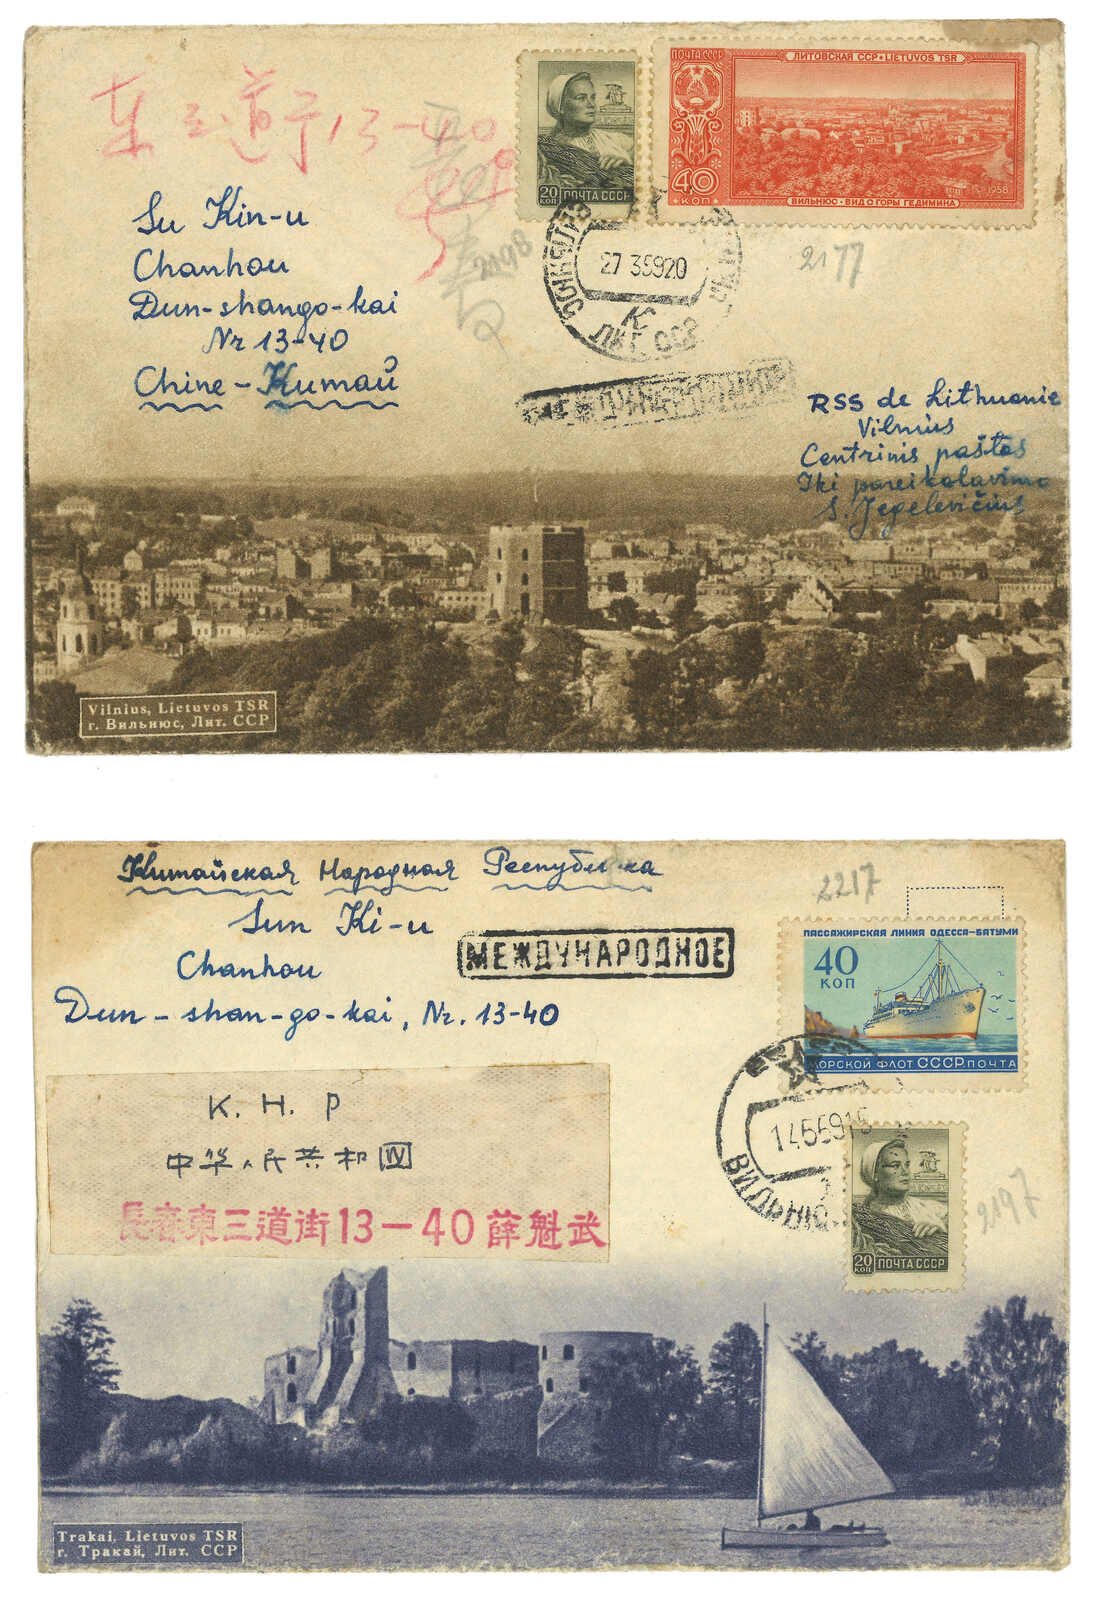 东三道于13-40
ПОЧТА СССР
ЛИТОВСКАЯ ССР • LIETUVOS TSR
20 КОП ПОЧТА СССР
40 КОП
1958
ВИЛЬНЮС • ВИД С ГОРЫ ГЕДИМИНА
Su Kin-u
Chanhou
Dun-shango-kai
Nr 13-40
Chine - Китай
2198
2177
ВИЛЬНЮС
27 35920
ЛИТ. ССР
МЕЖДУНАРОДНОЕ
RSS de Lithuanie
Vilnius
Centrinis paštas
Iki pareikalavimo
S. Jegelevičius
Vilnius, Lietuvos TSR
г. Вильнюс, Лит. ССР
Китайская Народная Республика
Sun Ki-u
Chanhou
Dun-shan-go-kai, Nr. 13-40
МЕЖДУНАРОДНОЕ
2217
ПАССАЖИРСКАЯ ЛИНИЯ ОДЕССА-БАТУМИ
40 КОП
МОРСКОЙ ФЛОТ СССР ПОЧТА
ВИЛЬНЮС
20 КОП ПОЧТА СССР
2197
K. H. P
中华人民共和国
長春東三道街13—40薛魁武
Trakai, Lietuvos TSR
г. Тракай, Лит. ССР